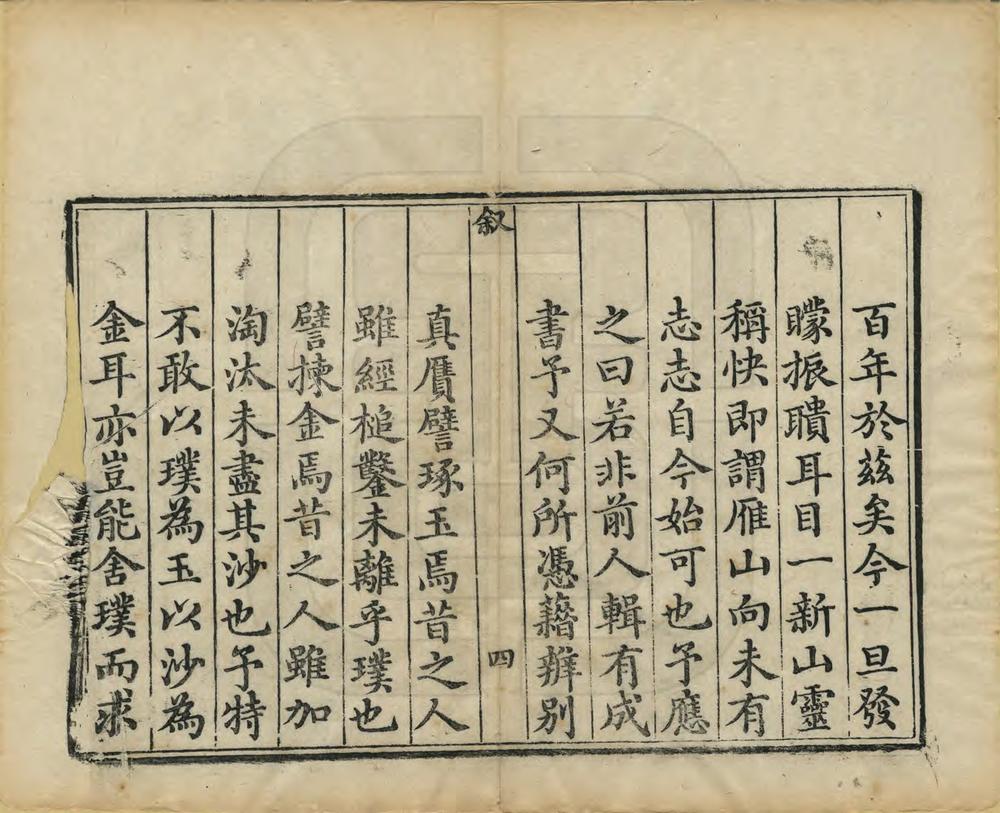 百年於兹矣今一旦發
矇振聵耳目一新山靈
稱快即謂雁山向未有
志志自今始可也予應
之曰若非前人輯有成
書予又何所憑藉辨别
叙
四
真贋譬琢玉焉昔之人
雖經槌鑿未離乎璞也
譬揀金焉昔之人雖加
淘汰未盡其沙也予特
不敢以璞為玉以沙為
金耳亦豈能舍璞而求